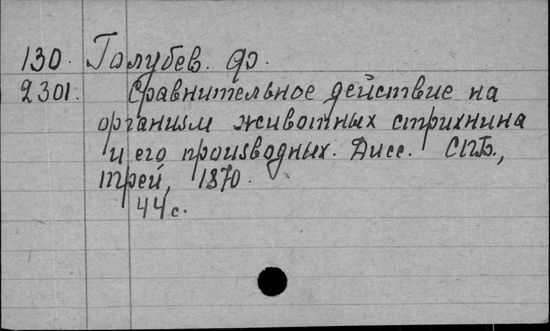 130. Голубев. Ф.
2301. Сравнительное действие на
организм животных стрихнина
и его производных. Дисс. СПБ.,
трей, 1870.
44 с.